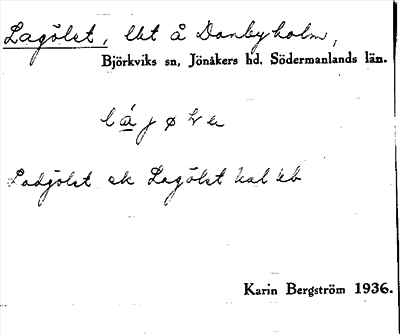 Lagölet, lht å Danbyholm,
Björkviks sn, Jönåkers hd, Södermanlands län.
Ladjölet ek Lagölet kal kb
Karin Bergström 1936.